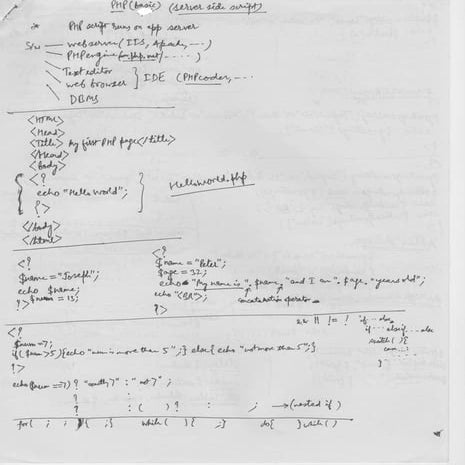 PHP (basic) (server side script)
* PHP script runs on app server
S/w — webserver (IIS, Apache, ....)
PHP engine (www.php.net/ .....)
Text editor
web browser } IDE (PHPcoder, ...
DBMS
<Html>
<Head>
<Title> My first PHP page</title>
</Head>
<Body>
<?
echo "Hello World";
?>
Helloworld.php
</body>
</html>
<?
$name = "Joseph";
echo $name;
$num = 13;
?>
<?
$name = "Peter";
$age = 32;
echo "My name is ". $name, "and I am ". $age. "years old";
echo "<BR>";
concatenation operator
?>
<?
$num=7;
if($num>5){echo "num is more than 5";} else{ echo "not more than 5";}
?>
&& || != ! if...else
if...elseif...else
switch () {
}
echo($num ==7) ? "exactly 7" : "not 7" ;
?
?
? : ( ) ? : ; → (nested if)
for( ; ; ){ ;} while ( ) { ;} do{ } while ( )